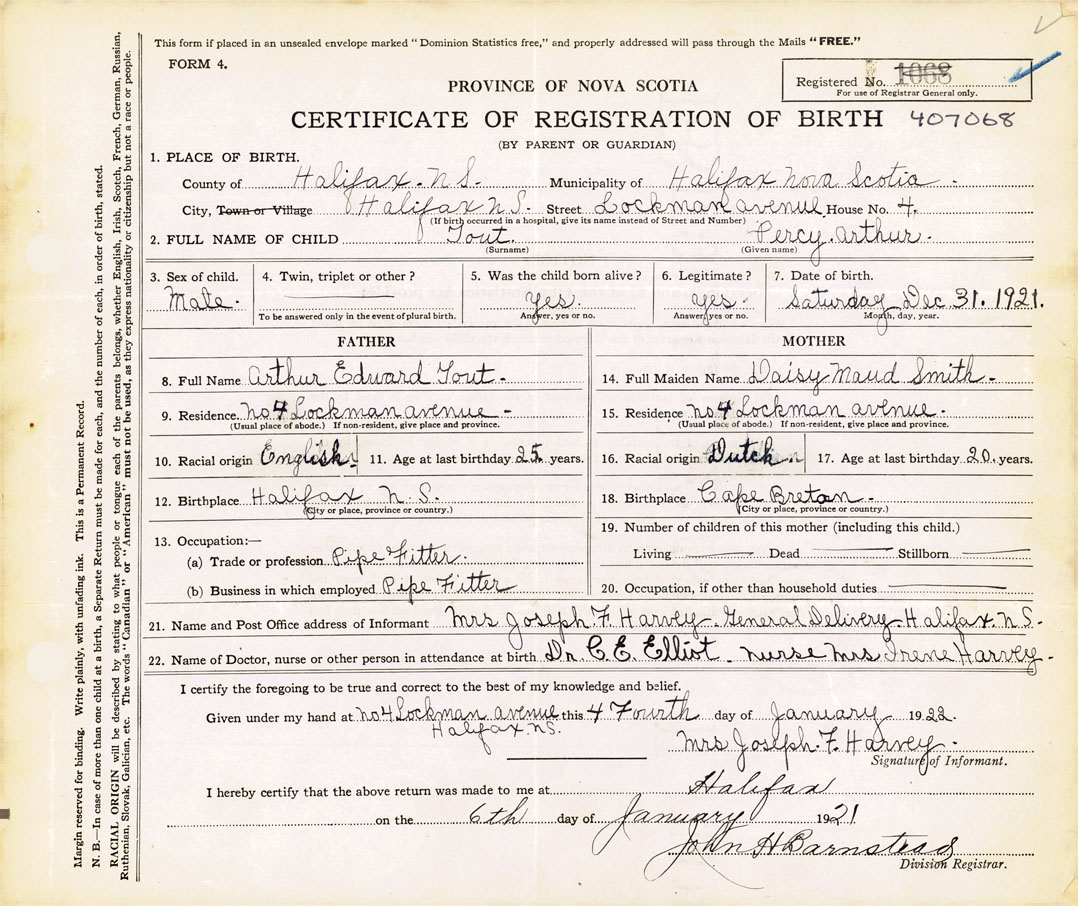 This form if placed in an unsealed envelope marked "Dominion Statistics free," and properly addressed will pass through the Mails "FREE."
FORM 4.
Registered No. 1068
For use of Registrar General only.
PROVINCE OF NOVA SCOTIA
CERTIFICATE OF REGISTRATION OF BIRTH 407068
(BY PARENT OR GUARDIAN)
1. PLACE OF BIRTH.
County of Halifax. N S. Municipality of Halifax Nova Scotia
City, Town or Village Halifax N S. Street Lockman avenue House No. 4.
(If birth occurred in a hospital, give its name instead of Street and Number)
2. FULL NAME OF CHILD Tout. Percy. Arthur.
(Surname) (Given name)
3. Sex of child. 4. Twin, triplet or other? 5. Was the child born alive? 6. Legitimate? 7. Date of birth.
Male. yes. yes. Saturday Dec. 31. 1921.
To be answered only in the event of plural birth. Answer, yes or no. Answer, yes or no. Month, day, year.
FATHER MOTHER
8. Full Name Arthur Edward Tout - 14. Full Maiden Name Daisy Maud Smith -
9. Residence. no 4 Lockman avenue - 15. Residence no 4 Lockman avenue -
(Usual place of abode.) If non-resident, give place and province. (Usual place of abode.) If non-resident, give place and province.
10. Racial origin English 11. Age at last birthday 25. years. 16. Racial origin Dutch 17. Age at last birthday 20. years.
12. Birthplace Halifax N. S. 18. Birthplace Cape Bretan -
(City or place, province or country.) (City or place, province or country.)
19. Number of children of this mother (including this child.)
13. Occupation:—
(a) Trade or profession Pipe Fitter. Living Dead Stillborn
(b) Business in which employed Pipe Fitter 20. Occupation, if other than household duties
21. Name and Post Office address of Informant Mrs Joseph F. Harvey - General Delivery - Halifax. N S. -
22. Name of Doctor, nurse or other person in attendance at birth Dr. C. E. Elliot. nurse Mrs Irene Harvey -
I certify the foregoing to be true and correct to the best of my knowledge and belief.
Given under my hand at no 4 Lockman avenue this 4 Fourth day of January 1922.
Halifax. NS.
Mrs Joseph. F. Harvey -
Signature of Informant.
I hereby certify that the above return was made to me at Halifax
on the 6th day of January 1921
John H Barnstead
Division Registrar.
Margin reserved for binding. Write plainly, with unfading ink. This is a Permanent Record.
N. B.—In case of more than one child at a birth, a Separate Return must be made for each, and the number of each, in order of birth, stated.
RACIAL ORIGIN will be described by stating to what people or tongue each of the parents belongs, whether English, Irish, Scotch, French, German, Russian,
Ruthenian, Slovak, Galician, etc. The words "Canadian" or "American" must not be used, as they express nationality or citizenship but not a race or people.